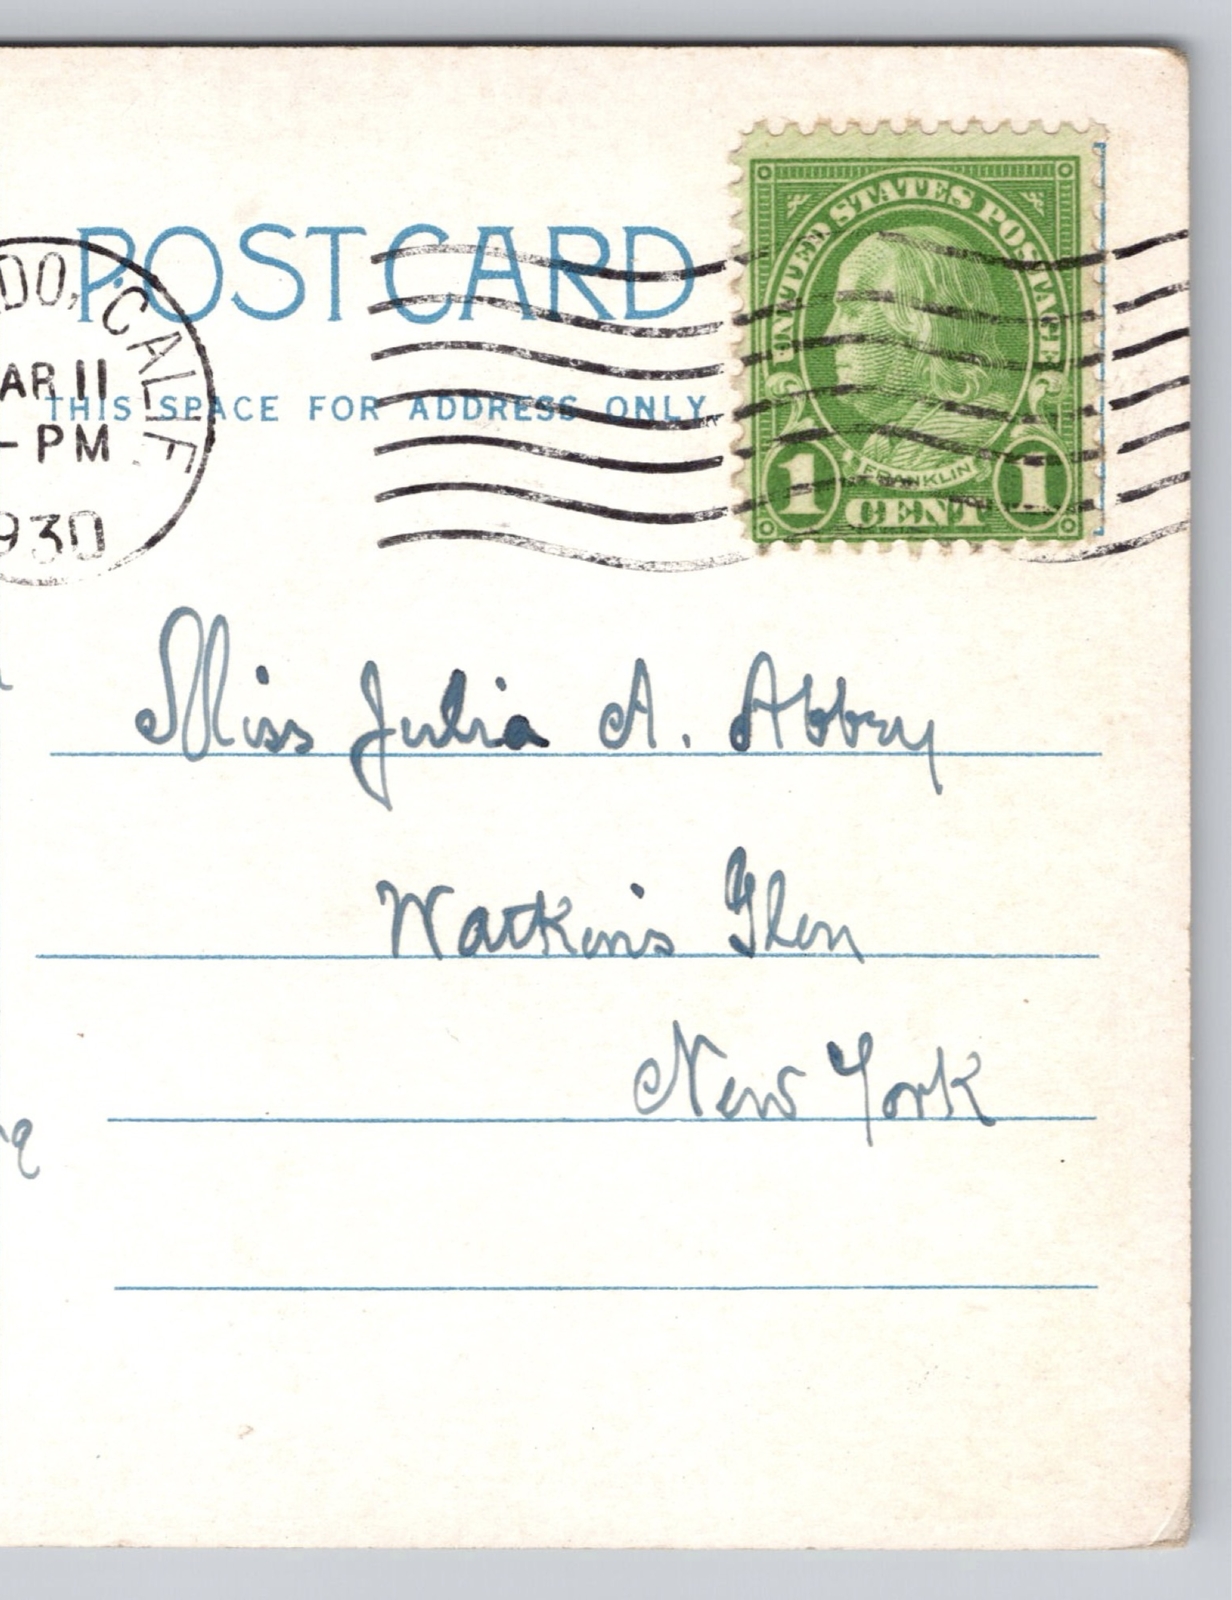 POST CARD
DO, CALIF.
AR 11
- PM
930
THIS SPACE FOR ADDRESS ONLY
UNITED STATES POSTAGE
FRANKLIN
1 CENT 1
Miss Julia A. Abbey
Watkins Glen
New York